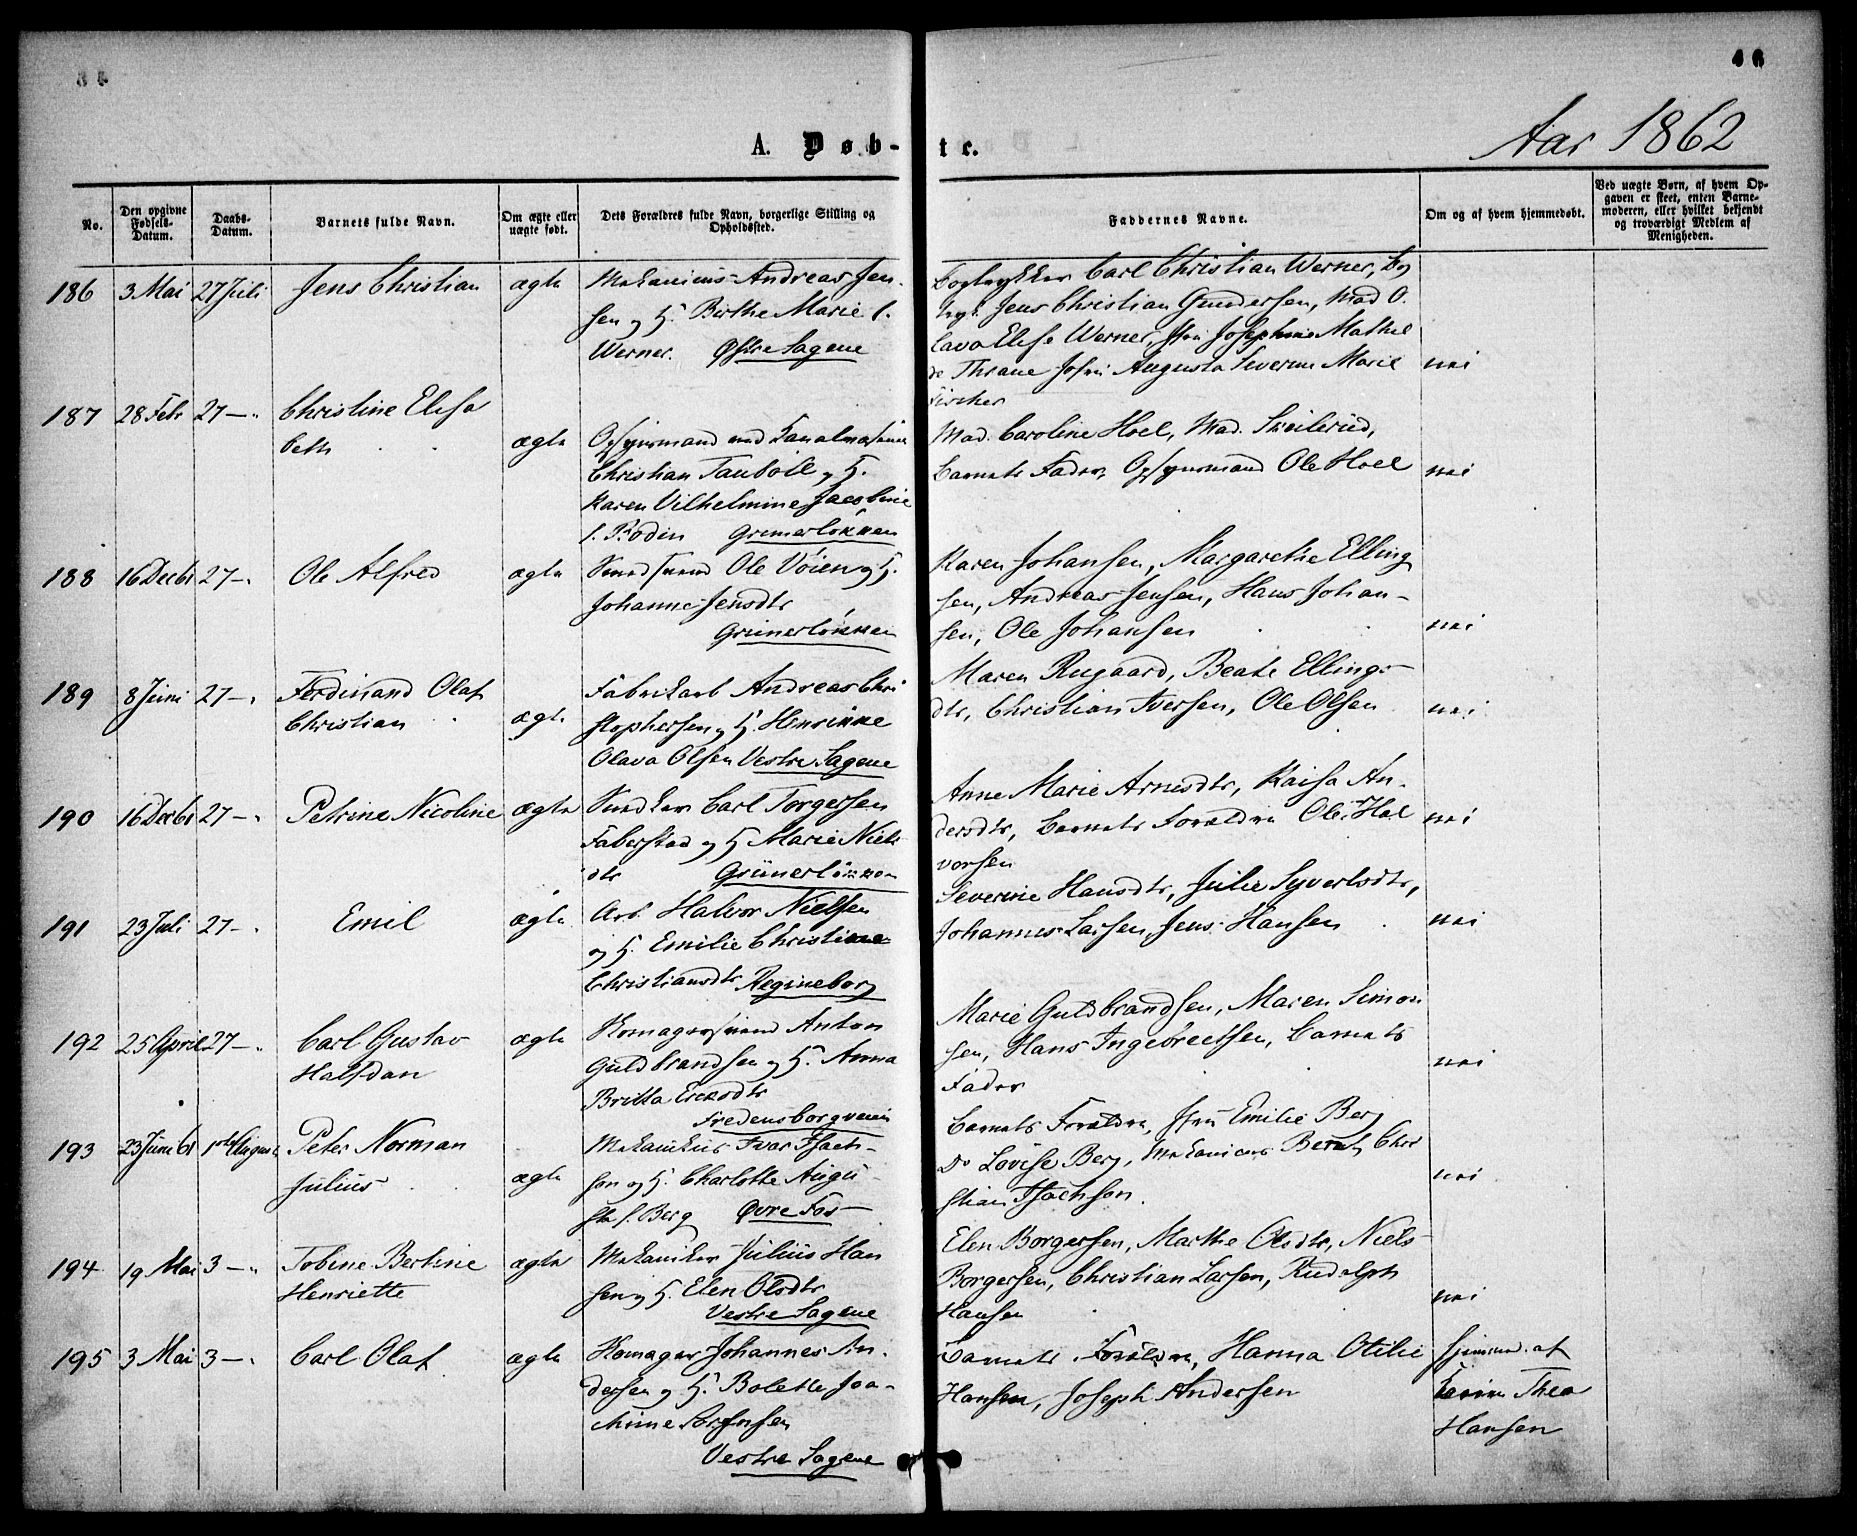 46
A. Døb-te.
Aar 1862
No.
Den opgivne Fødsels-Datum.
Daabs-Datum.
Barnets fulde Navn.
Om ægte eller uægte født.
Dets Forældres fulde Navn, borgerlige Stilling og Opholdssted.
Faddernes Navne.
Om og af hvem hjemmedøbt.
Ved uægte Børn, af hvem Opgaven er skeet, enten Barnemoderen, eller hvilket bekjendt og troværdigt Medlem af Menigheden.
186 3 Mai 27 Juli Jens Christian ægte
Mekanicus Andreas Jen-
sen og H. Birthe Marie f.
Werner. Østre Sagene
Bogtrykker Carl Christian Werner, Bog
tryk. Jens Christian Gundersen, Mad O.
lava Elise Werner, Jfru Josephine Mathil
de Thrane Jofru Augusta Severine Marie
Fircher
nei
187 28 Febr 27 —" Christine Elisa
beth ægte
Opsynsmand ved Kanalvæsenet
Christian Taubøll og H.
Karen Vilhelmine Jacobine
f. Bodin Grünerløkken
Mad. Caroline Hoel, Mad. Skeilerud,
Barnets Fader, Opsynsmand Ole Hoel
nei
188 16 Dec 61 27 —" Ole Alfred ægte
Smedsvend Ole Vøien og H.
Johanne Jensdtr
Grünerløkken
Karen Johansen, Margarethe Elling
sen, Andreas Jensen, Hans Johan-
sen, Ole Johansen
nei
189 8 Juni 27 —" Ferdinand Olaf
Christian ægte
Fabrikarb Andreas Chri
stophersen og H. Henrikke
Olava Olsen Vestre Sagene
Maren Rugaard, Beate Ellings-
dtr, Christian Iversen, Ole Olsen
nei
190 16 Dec 61 27 —" Petrine Nicoline ægte
Snedker Carl Torgersen
Faberstad og H Marie Niels
dtr Grünerløkken
Anne Marie Arnesdtr, Kaisa An-
dersdtr, Barnets Forældre Ole Hal
vorsen
nei
191 23 Juli 27 —" Emil ægte
Arb. Halvor Nielsen
og H. Emilie Christiane
Christiansdtr Regineborg
Severine Hansdtr, Julie Syvertsdtr,
Johannes Larsen, Jens Hansen
nei
192 25 April 27 —" Carl Gustav
Halfdan ægte
Skomagersvend Anton
Guldbrandsen og H. Anna
Britta Ericsdtr
Fredensborgveien
Marie Guldbrandsen, Maren Simon
sen, Hans Ingebretsen, Barnets
Fader
nei
193 23 Juni 61 1ste August Peter Norman
Julius ægte
Mekanikus Ivar Isach-
sen og H. Charlotte Augu-
sta f. Berg Øvre Fos
Barnets Forældre, Jfru Emilie Berg
Do Lovise Berg, Mekanicus Bernt Chri
stian Isachsen.
nei
194 19 Mai 3 —" Tobine Bertine
Henriette ægte
Mekaniker Julius Han
sen og H. Elen Olsdtr
Vestre Sagene
Elen Borgersen, Marthe Olsdtr, Niels
Borgersen, Christian Larsen, Rudolph
Hansen
nei
195 3 Mai 3 —" Carl Olaf ægte
Skomager Johannes An-
dersen og H. Bolette Joa-
chime Sørensen
Vestre Sagene
Barnets Forældre, Hanna Otilie
Hansen, Joseph Andersen
hjemmed. af
Thea
Hansen